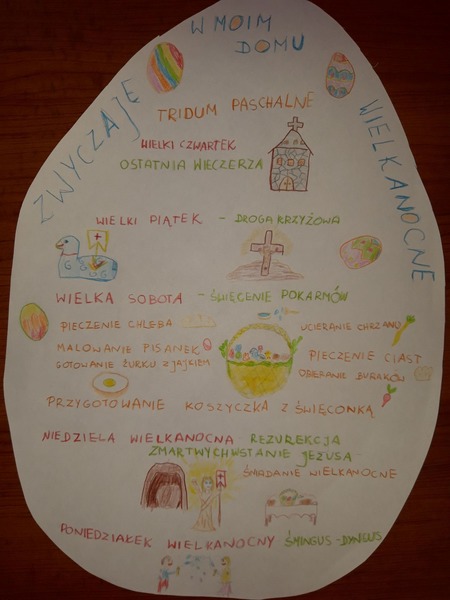 W MOIM
DOMU
ZWYCZAJE
WIELKANOCNE
TRIDUM PASCHALNE
WIELKI CZWARTEK
OSTATNIA WIECZERZA
WIELKI PIĄTEK - DROGA KRZYŻOWA
WIELKA SOBOTA - ŚWIĘCENIE POKARMÓW
PIECZENIE CHLEBA
UCIERANIE CHRZANU
MALOWANIE PISANEK
PIECZENIE CIAST
GOTOWANIE ŻURKU Z JAJKIEM
OBIERANIE BURAKÓW
PRZYGOTOWANIE KOSZYCZKA Z ŚWIĘCONKĄ
NIEDZIELA WIELKANOCNA - REZUREKCJA
ZMARTWYCHWSTANIE JEZUSA
ŚNIADANIE WIELKANOCNE
PONIEDZIAŁEK WIELKANOCNY ŚMINGUS-DYNGUS